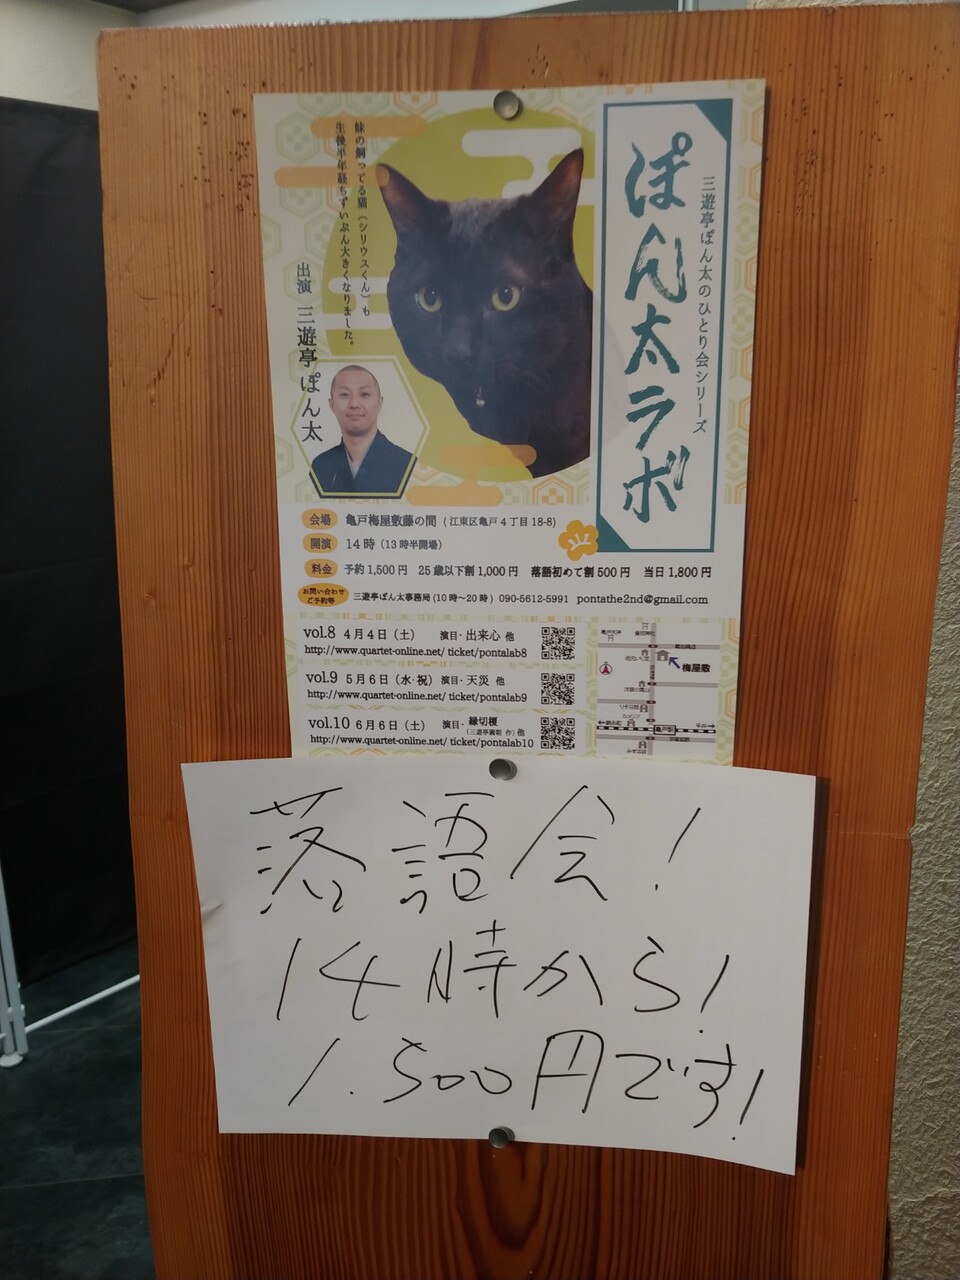 ぽん太ラボ
三遊亭ぽん太のひとり会シリーズ
妹の飼ってる猫(シリウスくん)も
生後半年経ちずいぶん大きくなりました。
出演 三遊亭ぽん太
会場 亀戸梅屋敷藤の間 (江東区亀戸4丁目18-8)
開演 14時(13時半開場)
料金 予約1,500円 25歳以下割1,000円 落語初めて割500円 当日1,800円
お問い合わせ
ご予約等
三遊亭ぽん太事務局(10時〜20時) 090-5612-5991 pontathe2nd@gmail.com
vol.8 4月4日(土) 演目・出来心 他
http://www.quartet-online.net/ ticket/pontalab8
vol.9 5月6日(水・祝) 演目・天災 他
http://www.quartet-online.net/ ticket/pontalab9
vol.10 6月6日(土) 演目・縁切榎 他
(三遊亭圓朝 作)
http://www.quartet-online.net/ ticket/pontalab10
梅屋敷
亀戸駅
落語会!
14時から!
1.500円です!